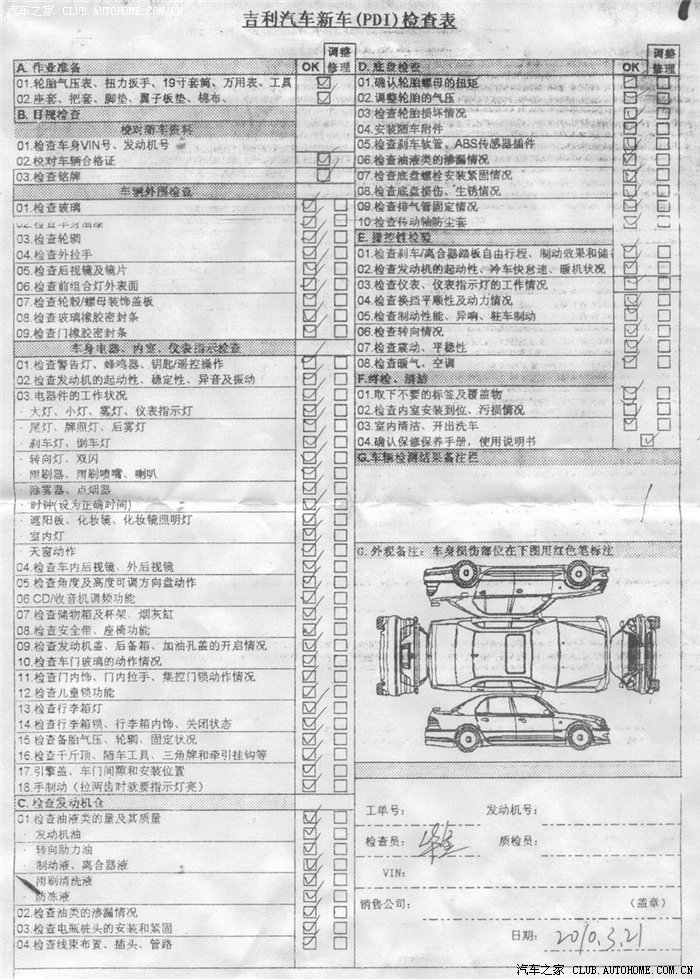 汽车之家 CLUB.AUTOHOME.COM.CN
吉利汽车新车(PDI)检查表
A. 作业准备
OK
调整
修理
01.轮胎气压表、扭力扳手、19寸套筒、万用表、工具
02.座套、把套、脚垫、翼子板垫、棉布、
B. 目视检查
校对随车资料
01.检查车身VIN号、发动机号
02.校对车辆合格证
03.检查铭牌
车辆外围检查
01.检查玻璃
02.检查车身油漆
03.检查轮辋
04.检查外拉手
05.检查后视镜及镜片
06.检查前组合灯外表面
07.检查轮毂/螺母装饰盖板
08.检查玻璃橡胶密封条
09.检查门橡胶密封条
车身电器、内室、仪表指示检查
01.检查警告灯、蜂鸣器、钥匙/遥控操作
02.检查发动机的起动性、稳定性、异音及振动
03.电器件的工作状况
· 大灯、小灯、雾灯、仪表指示灯
· 尾灯、牌照灯、后雾灯
· 刹车灯、倒车灯
· 转向灯、双闪
· 雨刷器、雨刷喷嘴、喇叭
· 除雾器、点烟器
· 时钟(设为正确时间)
· 遮阳板、化妆镜、化妆镜照明灯
· 室内灯
· 天窗动作
04.检查车内后视镜、外后视镜
05.检查角度及高度可调方向盘动作
06.CD/收音机调频功能
07.检查储物箱及杯架、烟灰缸
08.检查安全带、座椅功能
09.检查发动机盖、后备箱、加油孔盖的开启情况
10.检查车门玻璃的动作情况
11.检查门内饰、门内拉手、集控门锁动作情况
12.检查儿童锁功能
13.检查行李箱灯
14.检查行李箱锁、行李箱内饰、关闭状态
15.检查备胎气压、轮辋、固定状况
16.检查千斤顶、随车工具、三角牌和牵引挂钩等
17.引擎盖、车门间隙和安装位置
18.手制动（拉两齿时就要指示灯亮）
C. 检查发动机仓
01.检查油液类的量及其质量
· 发动机油
· 转向助力油
· 制动液、离合器液
· 雨刷清洗液
· 防冻液
02.检查油类的渗漏情况
03.检查电瓶桩头的安装和紧固
04.检查线束布置、插头、管路
D. 底盘检查
OK
调整
修理
01.确认轮胎螺母的扭矩
02.调整轮胎的气压
03.检查轮胎损坏情况
04.安装随车附件
05.检查刹车软管、ABS传感器插件
06.检查油液类的渗漏情况
07.检查底盘螺栓安装紧固情况
08.检查底盘损伤、生锈情况
09.检查排气管固定情况
10.检查传动轴防尘套
E. 操控性检验
01.检查刹车/离合器踏板自由行程、制动效果和储
02.检查发动机的起动性、冷车快怠速、暖机状况
03.检查仪表、仪表指示灯的工作情况
04.检查换挡平顺性及动力情况
05.检查制动性能、异响、驻车制动
06.检查转向情况
07.检查震动、平稳性
08.检查暖气、空调
F.终检、清洁
01.取下不要的标签及覆盖物
02.检查内室安装到位、污损情况
03.室内清洁、开出洗车
04.确认保修保养手册，使用说明书
G.车辆检测结果备注栏
G. 外观备注：车身损伤部位在下图用红色笔标注
工单号：
发动机号：
检查员：
质检员：
VIN：
销售公司：
（盖章）
日期： 2010.3.21
汽车之家 CLUB.AUTOHOME.COM.CN